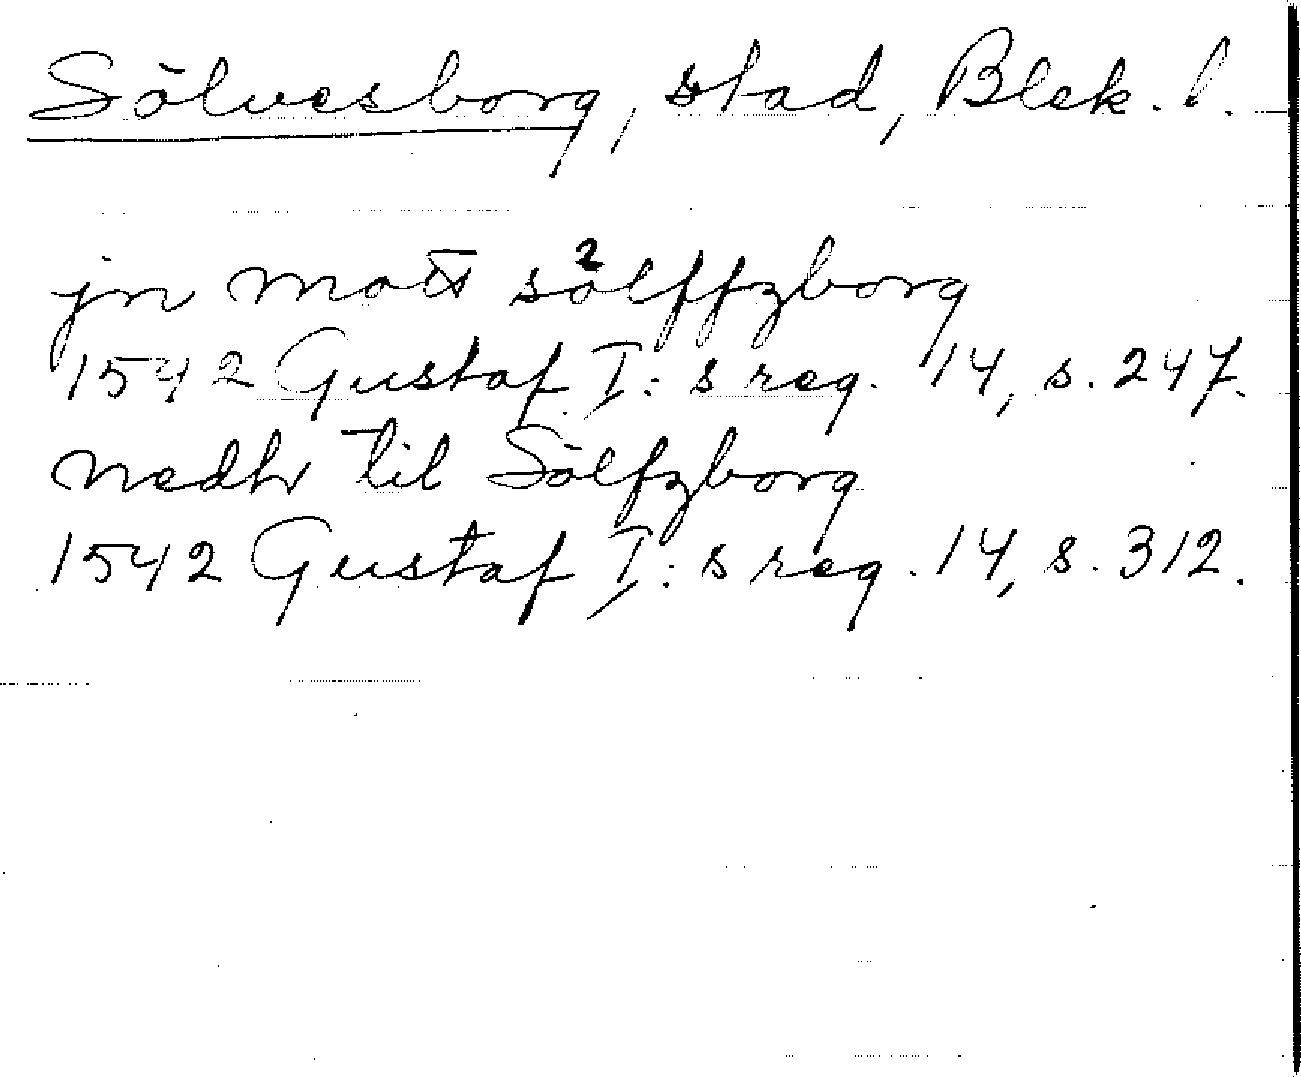 Sölvesborg, stad, Blek. l.
jn mott sölffzborg
1542 Gustaf I:s reg. 14, s. 247.
nedhr til Sölfzborg
1542 Gustaf I:s reg. 14, s. 312.